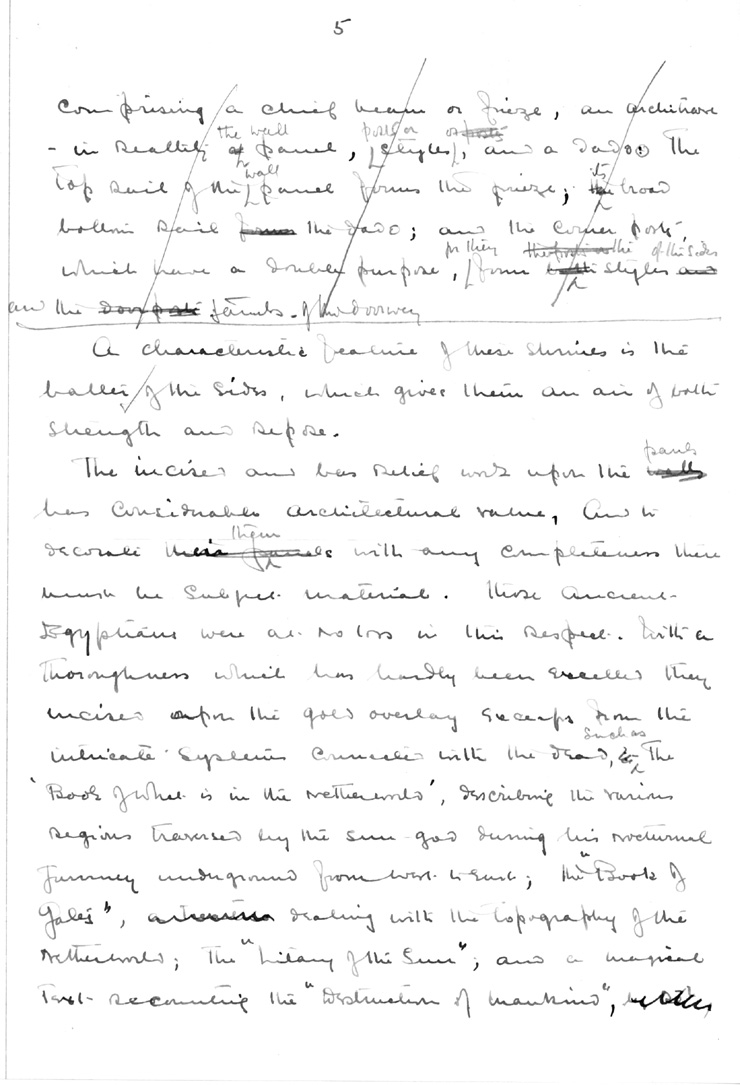 5
comprising a chief beam or frieze, an architrave
the wall posts or or posts
- in reality a panel, styles, and a dado. The
wall its
top rail of the panel forms the frieze; the broad
bottom rail forms the dado; and the corner posts,
for they the of the sides
which have a double purpose, form both styles and
and the door posts jambs of the doorway
A characteristic feature of these shrines is the
batter of the sides, which gives them an air of both
strength and repose.
panels
The incised and bas relief work upon the walls
has considerable architectural value, and to
them
decorate their panels with any completeness there
must be subject material. Those Ancient
Egyptians were at no loss in this respect. With a
thoroughness which has hardly been excelled they
incised upon the gold overlay excerps from the
such as
intricate systems connected with the dead, The
'Book of what is in the Netherworld', describing the various
regions traversed by the sun-god during his nocturnal
journey underground from west to east; the "Book of
Gates", dealing with the topography of the
Netherworld; The "Litany of the Sun"; and a magical
Text recounting the "Destruction of Mankind",